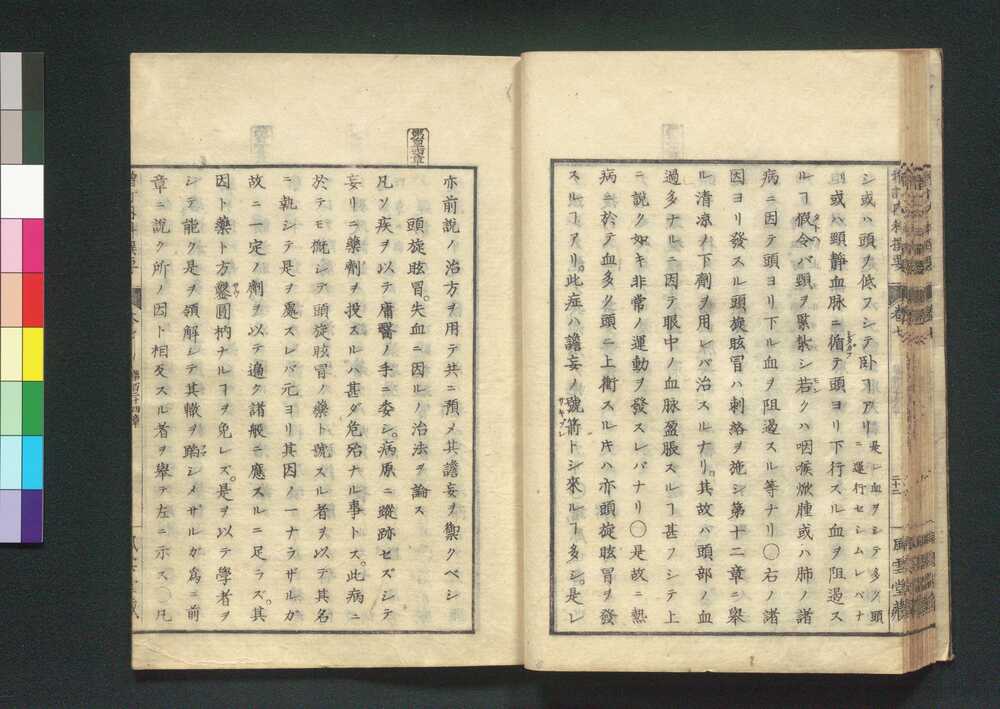 シ或ハ頭ヲ低スシテ卧コアリ是レ血ヲシテ多ク頭ニ運行セシムレバナ
リ或ハ頸靜血脉ニ循テ頭ヨリ下行スル血ヲ阻遏ス
ルコ假令バ頸ヲ緊紮シ若クハ咽喉焮腫或ハ肺ノ諸
病ニ因テ頭ヨリ下ル血ヲ阻遏スル等ナリ〇右ノ諸
因ヨリ發スル頭旋眩冒ハ刺絡ヲ施シ第十二章ニ舉
ル清凉ノ下劑ヲ用レバ治スルナリ。其故ハ頭部ノ血
過多ナルニ因テ眼中ノ血脉盈脹スルコ甚フシテ上
ニ說ク如キ非常ノ運動ヲ發スレバナリ〇是故ニ熱
病ニ於テ血多ク頭ニ上衝スル𪜈ハ亦頭旋眩冒ヲ發
スルコアリ。此症ハ譫妄ノ號箭トシ來ルコ多シ。是レ
風雲堂藏
亦前說ノ治方ヲ用テ共ニ預メ其譫妄ヲ禦クベシ
頭旋眩冒。失血ニ因ルノ治法ヲ論ス
凡ソ疾ヲ以テ庸醫ノ手ニ委シ。病原ニ蹤跡セズシテ
妄リニ藥劑ヲ投スルハ甚ダ危殆ナル事トス。此病ニ
於テモ概シテ頭旋眩冒ノ藥ト號スル者ヲ以テ其名
ニ執シテ是ヲ處スレバ元ヨリ其因ノ一ナラザルガ
故ニ一定ノ劑ヲ以テ遍ク諸般ニ應スルニ足ラズ。其
因ト藥ト方鑿圓枘ナルコヲ免レズ。是ヲ以テ學者ヲ
シテ能ク是ヲ領解シテ其轍ヲ蹈シメザルガ爲ニ前
章ニ說ク所ノ因ト相反スル者ヲ舉テ左ニ示ス〇凡